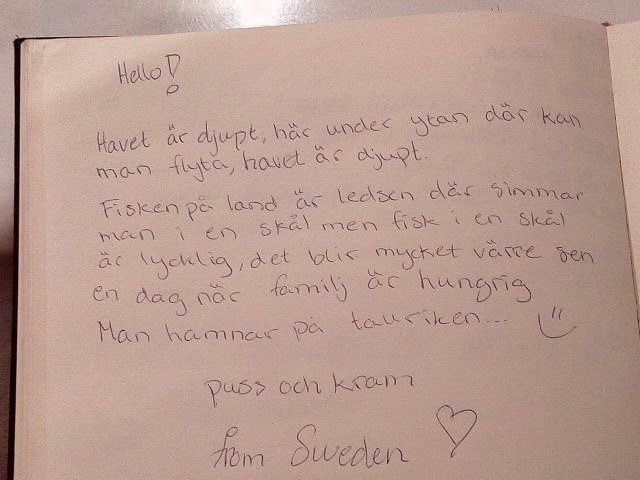 Hello!
Havet är djupt, här under ytan där kan
man flyta, havet är djupt.
Fisken på land är ledsen där simmar
man i en skål men fisk i en skål
är lycklig, det blir mycket värre sen
en dag när familj är hungrig
Man hamnar på tauriken...
puss och kram
from Sweden